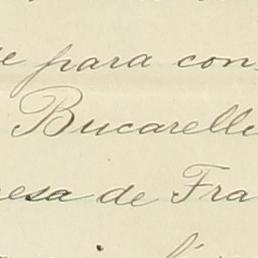 e para con
Bucarelle
esa de Fra